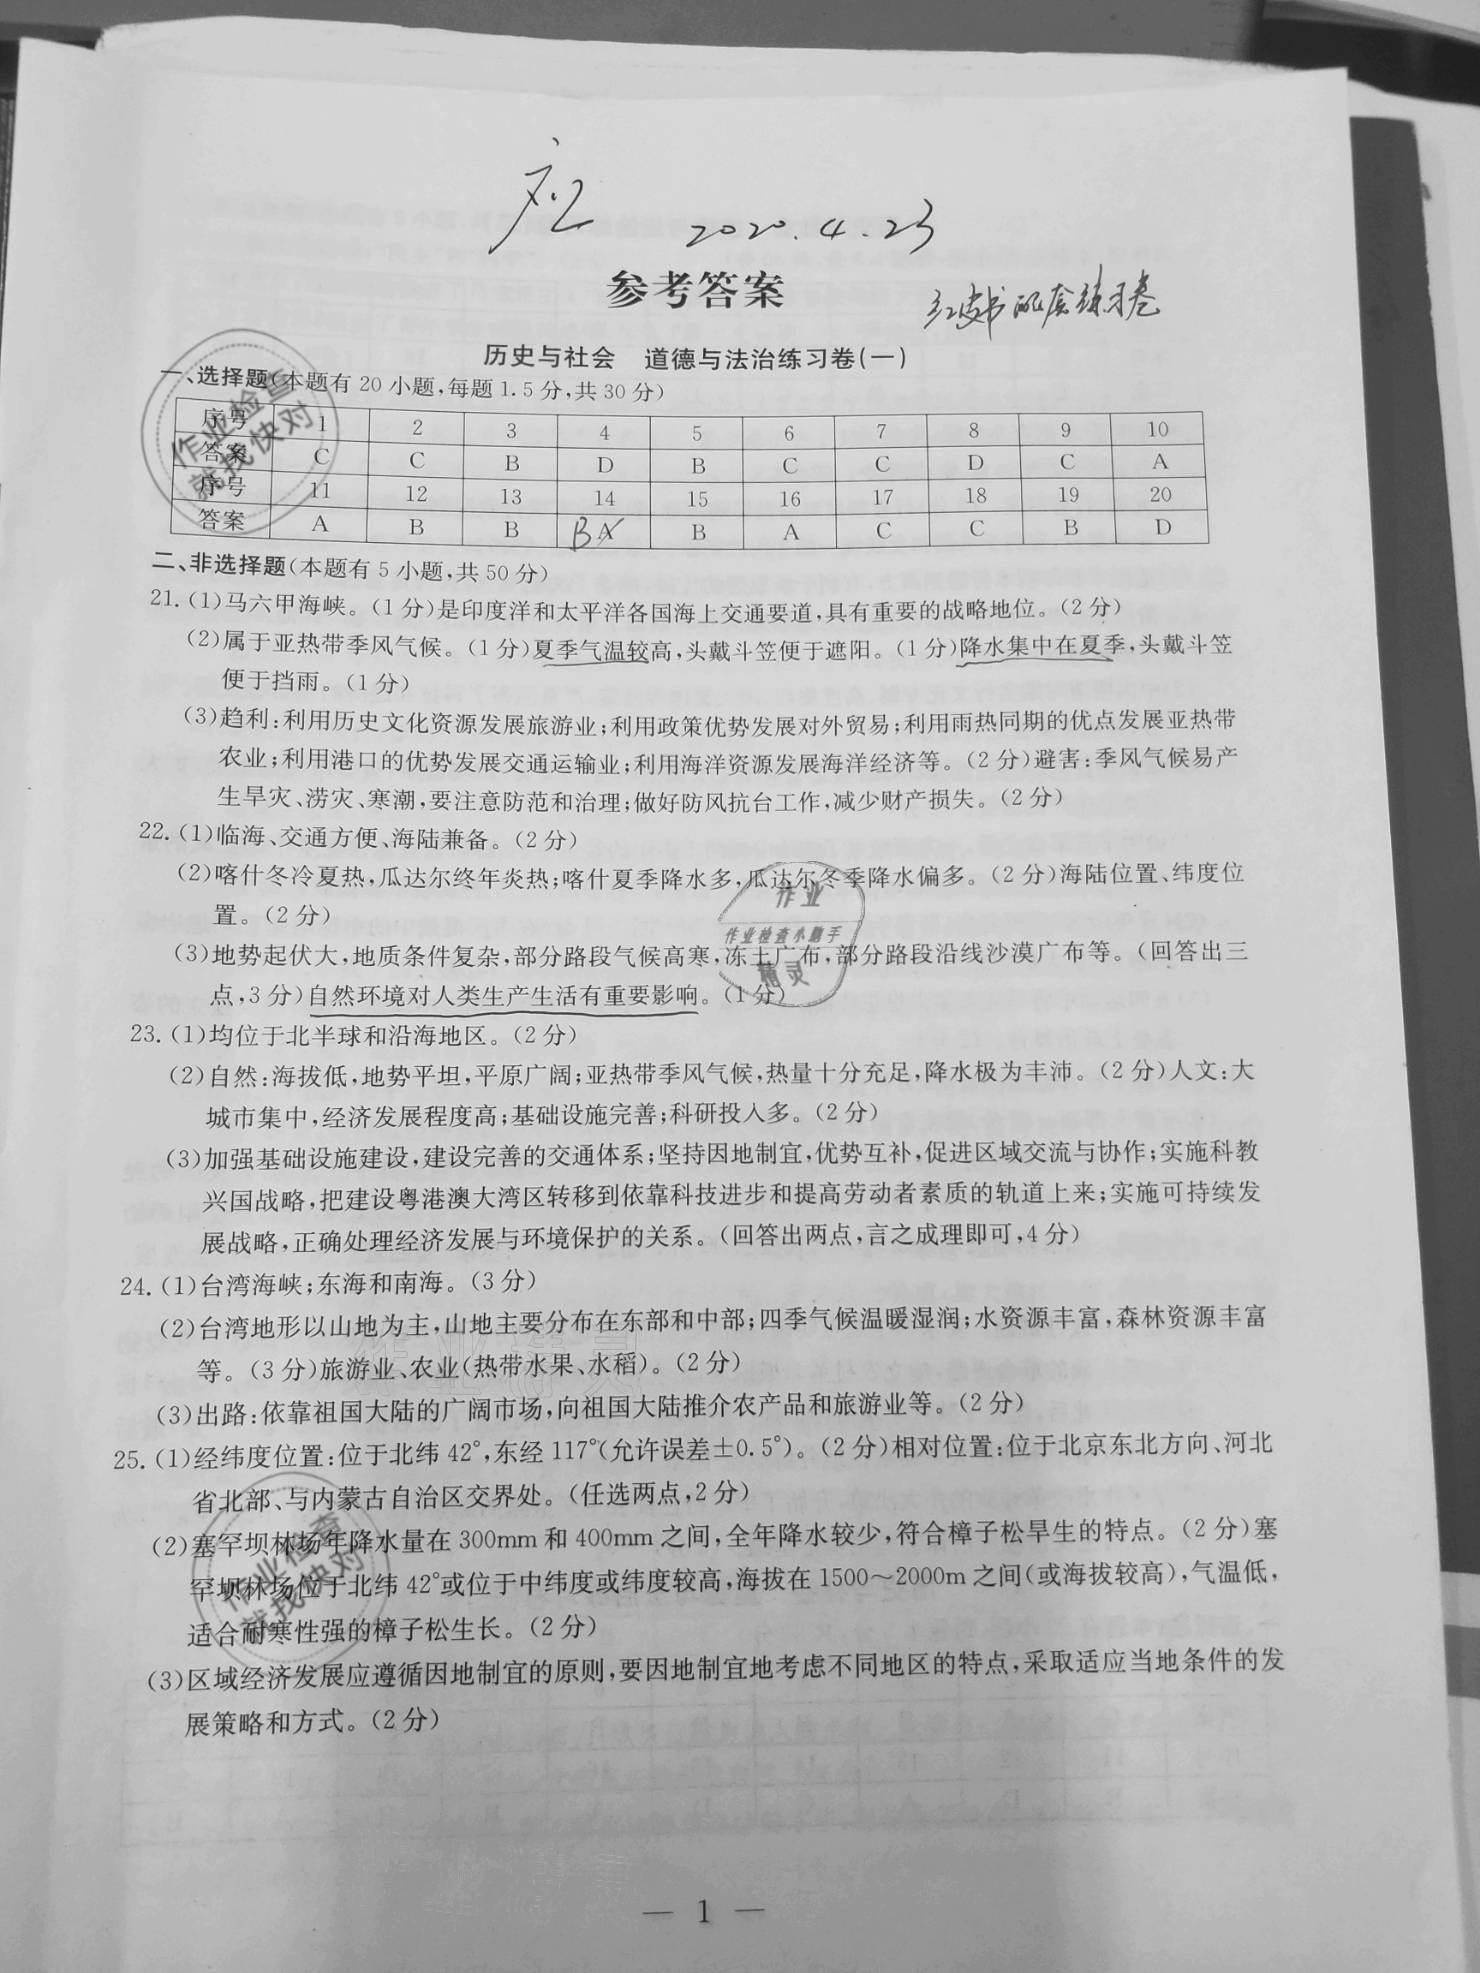 2020.4.23
参考答案
红皮书配套练习卷
历史与社会 道德与法治练习卷(一)
一、选择题(本题有 20 小题,每题 1.5 分,共 30 分)
序号 1 2 3 4 5 6 7 8 9 10
答案 C C B D B C C D C A
序号 11 12 13 14 15 16 17 18 19 20
答案 A B B B A B A C C B D
二、非选择题(本题有 5 小题,共 50 分)
21. (1)马六甲海峡。(1 分)是印度洋和太平洋各国海上交通要道,具有重要的战略地位。(2 分)
(2)属于亚热带季风气候。(1 分)夏季气温较高,头戴斗笠便于遮阳。(1 分)降水集中在夏季,头戴斗笠
便于挡雨。(1 分)
(3)趋利:利用历史文化资源发展旅游业;利用政策优势发展对外贸易;利用雨热同期的优点发展亚热带
农业;利用港口的优势发展交通运输业;利用海洋资源发展海洋经济等。(2 分)避害:季风气候易产
生旱灾、涝灾、寒潮,要注意防范和治理;做好防风抗台工作,减少财产损失。(2 分)
22. (1)临海、交通方便、海陆兼备。(2 分)
(2)喀什冬冷夏热,瓜达尔终年炎热;喀什夏季降水多,瓜达尔冬季降水偏多。(2 分)海陆位置、纬度位
置。(2 分)
(3)地势起伏大,地质条件复杂,部分路段气候高寒,冻土广布,部分路段沿线沙漠广布等。(回答出三
点,3 分)自然环境对人类生产生活有重要影响。(1 分)
23. (1)均位于北半球和沿海地区。(2 分)
(2)自然:海拔低,地势平坦,平原广阔;亚热带季风气候,热量十分充足,降水极为丰沛。(2 分)人文:大
城市集中,经济发展程度高;基础设施完善;科研投入多。(2 分)
(3)加强基础设施建设,建设完善的交通体系;坚持因地制宜,优势互补,促进区域交流与协作;实施科教
兴国战略,把建设粤港澳大湾区转移到依靠科技进步和提高劳动者素质的轨道上来;实施可持续发
展战略,正确处理经济发展与环境保护的关系。(回答出两点,言之成理即可,4 分)
24. (1)台湾海峡;东海和南海。(3 分)
(2)台湾地形以山地为主,山地主要分布在东部和中部;四季气候温暖湿润;水资源丰富,森林资源丰富
等。(3 分)旅游业、农业(热带水果、水稻)。(2 分)
(3)出路:依靠祖国大陆的广阔市场,向祖国大陆推介农产品和旅游业等。(2 分)
25. (1)经纬度位置:位于北纬 42°,东经 117°(允许误差±0.5°)。(2 分)相对位置:位于北京东北方向、河北
省北部、与内蒙古自治区交界处。(任选两点,2 分)
(2)塞罕坝林场年降水量在 300mm 和 400mm 之间,全年降水较少,符合樟子松旱生的特点。(2 分)塞
罕坝林场位于北纬 42°或位于中纬度或纬度较高,海拔在 1500～2000m 之间(或海拔较高),气温低,
适合耐寒性强的樟子松生长。(2 分)
(3)区域经济发展应遵循因地制宜的原则,要因地制宜地考虑不同地区的特点,采取适应当地条件的发
展策略和方式。(2 分)
作业检查
就找快对
作业
作业检查小助手
精灵
作业精灵
作业检查
就找快对
— 1 —